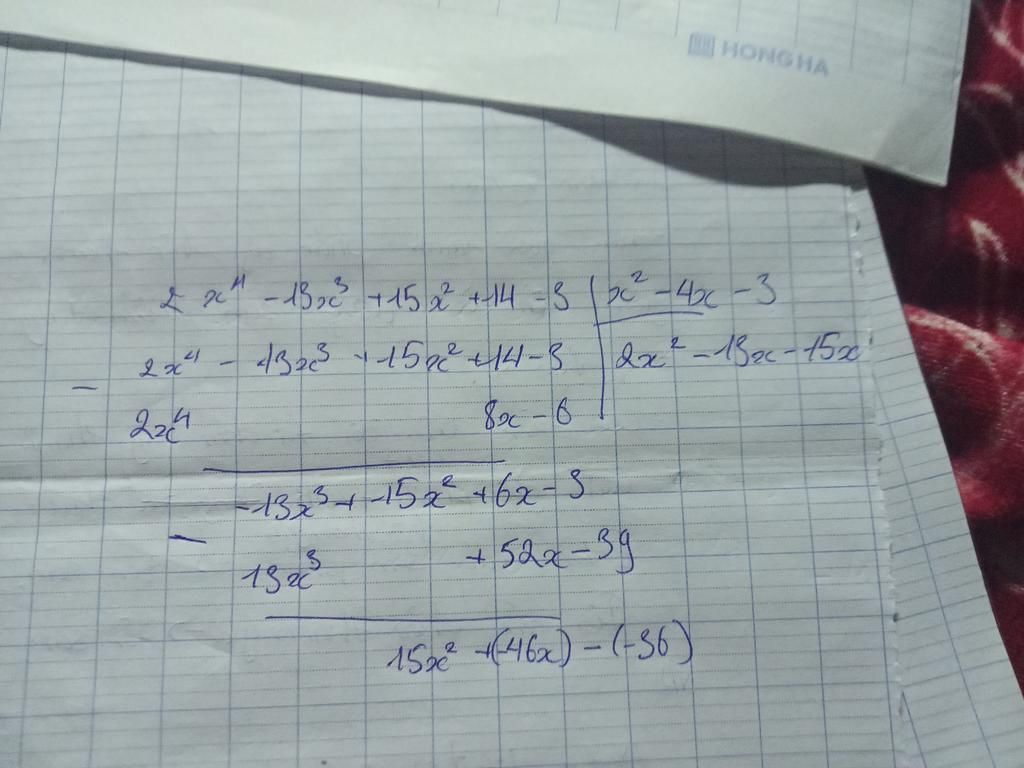 HONG HA
2x⁴ - 13x³ + 15x² + 14 - 3 | x² - 4x - 3
2x⁴ - 13x³ + 15x² + 14 - 3 | 2x² - 13x - 15x
-
2x⁴ 8x - 6
-13x³ + -15x² + 6x - 3
-
13x³ + 52x - 39
15x² + (-46x) - (-36)